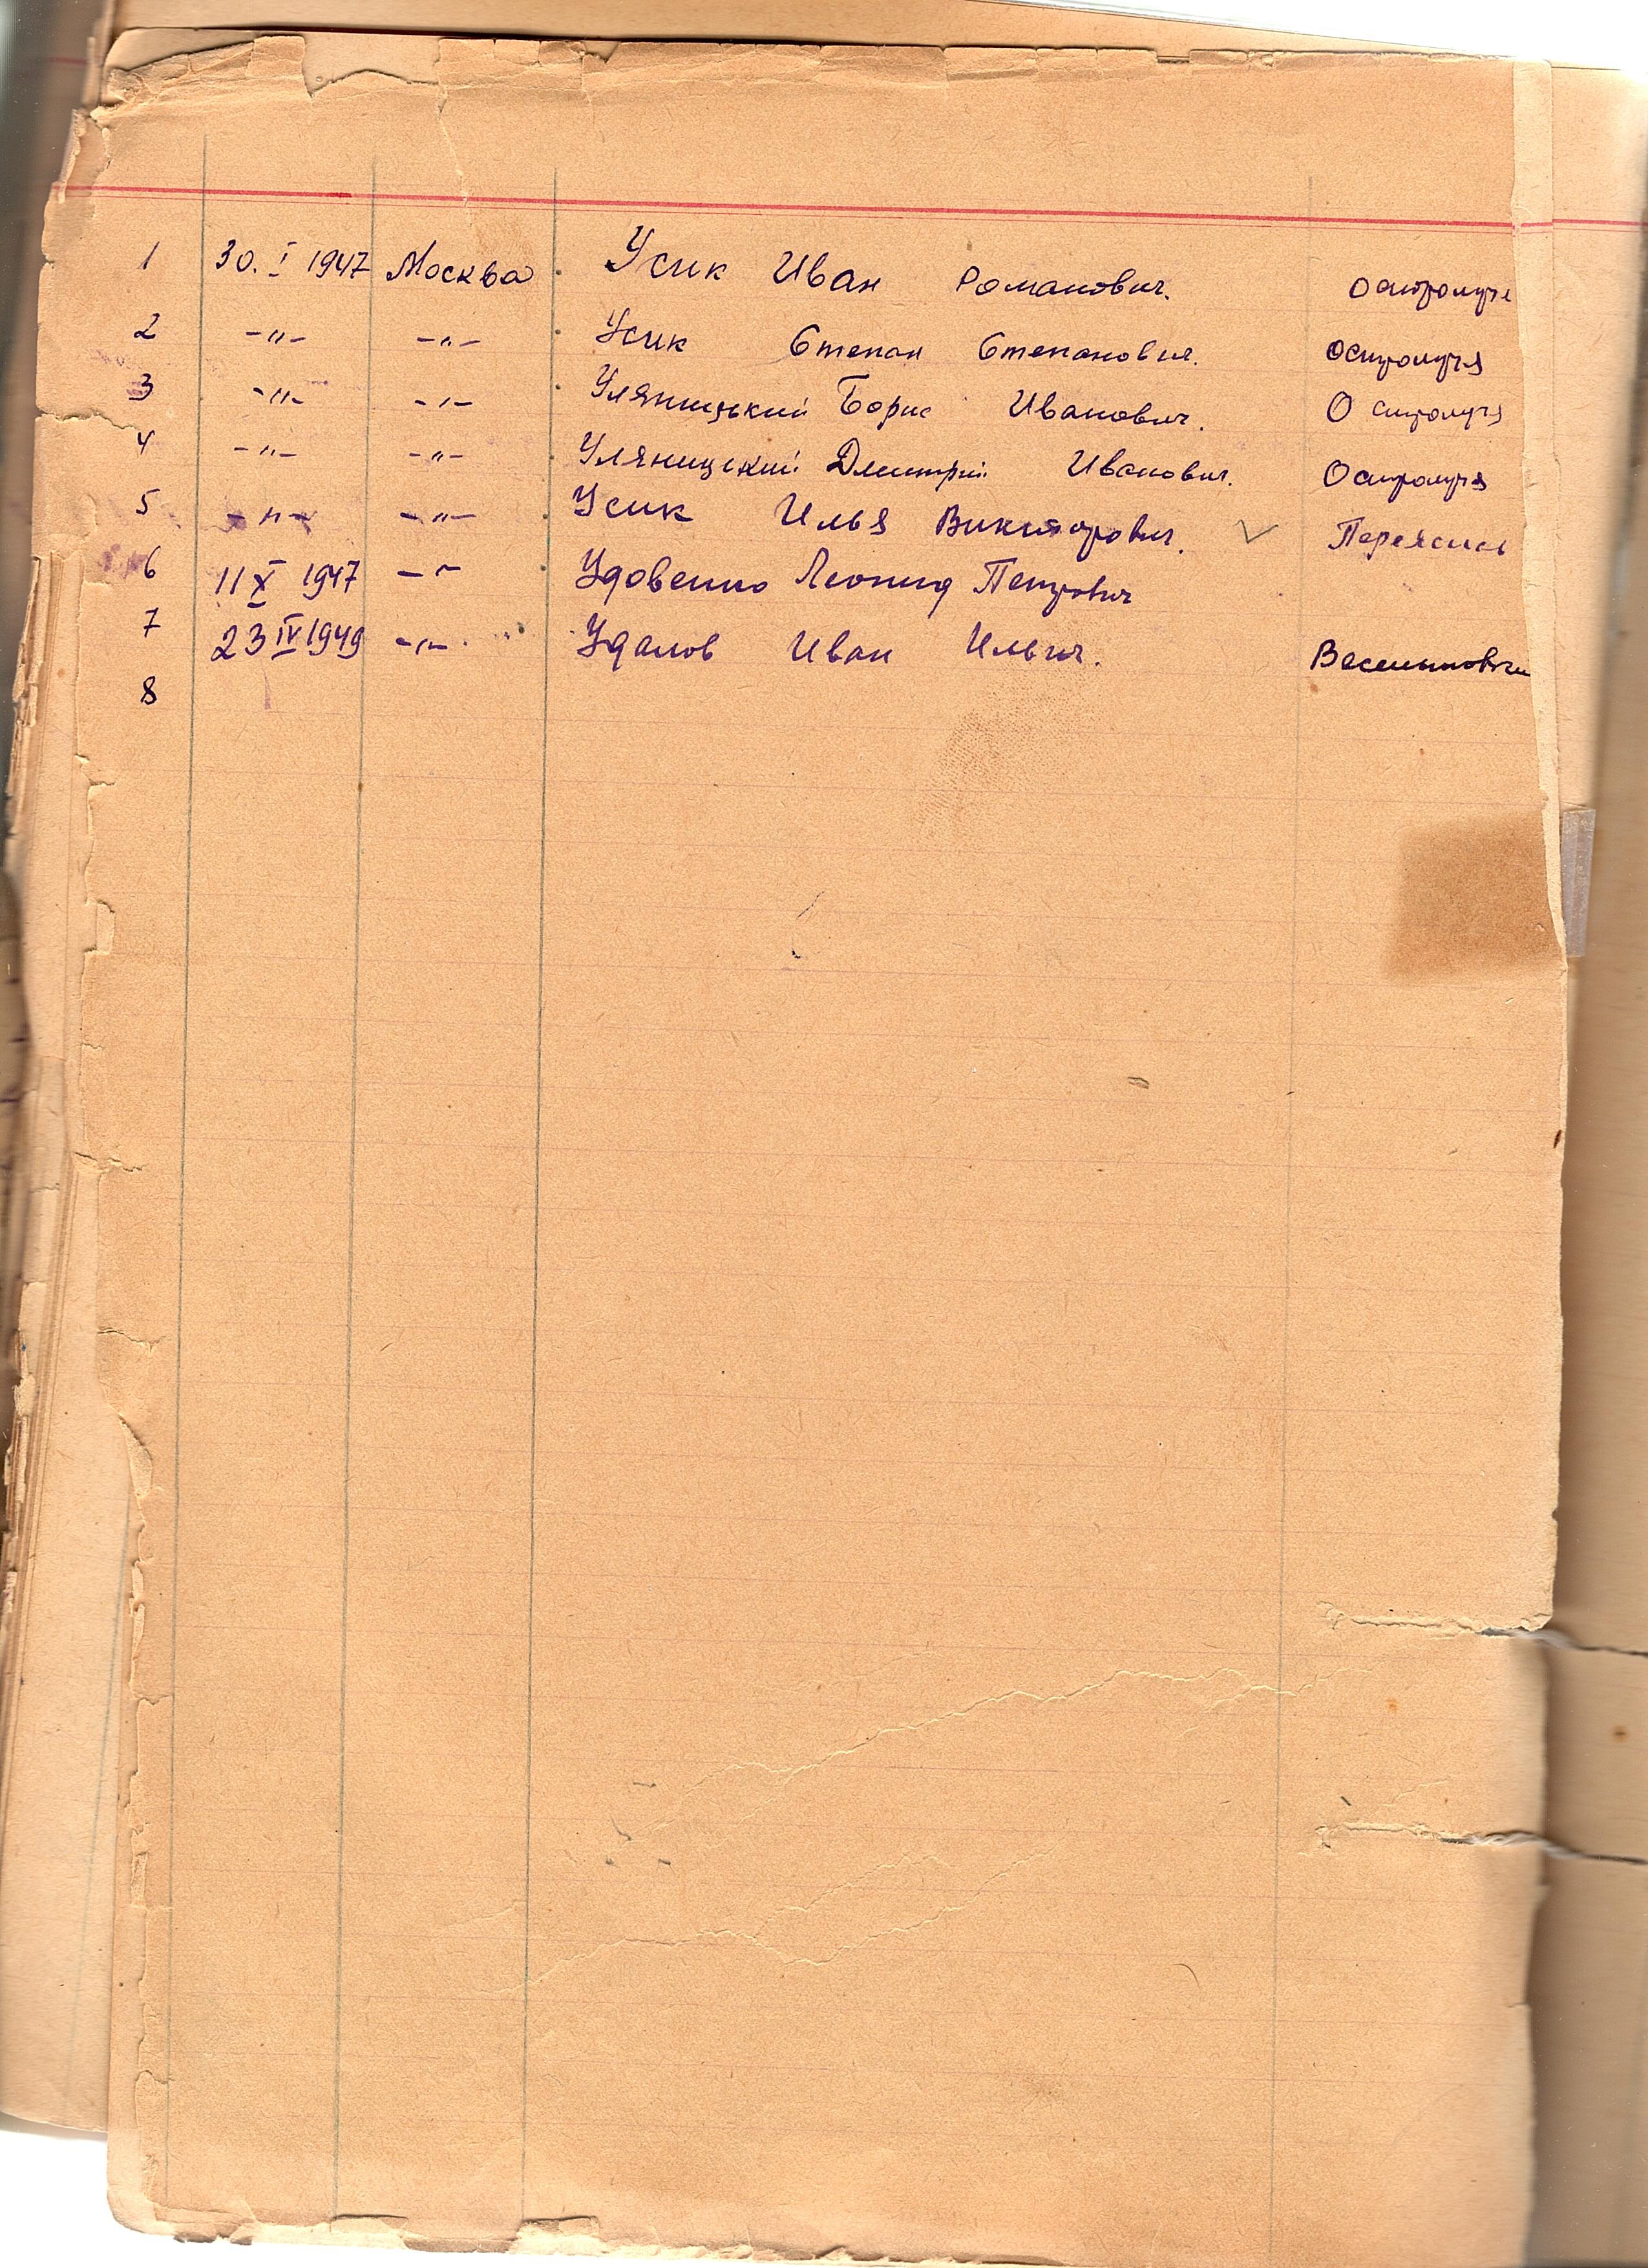 1 30. I 1947 Москва Усик Иван Романович.
2 -"- -"- Усик Степан Степанович. Остролучя
3 -"- -"- Уляницький Борис Иванович. Остролучя
4 -"- -"- Уляницкий Дмитрий Иванович. Остролучя
5 -"- -"- Усик Илья Викторович.
6 11 X 1947 -"- Удовенко Леонид Петрович
7 23 IV 1949 -"- Удалов Иван Ильич.
8